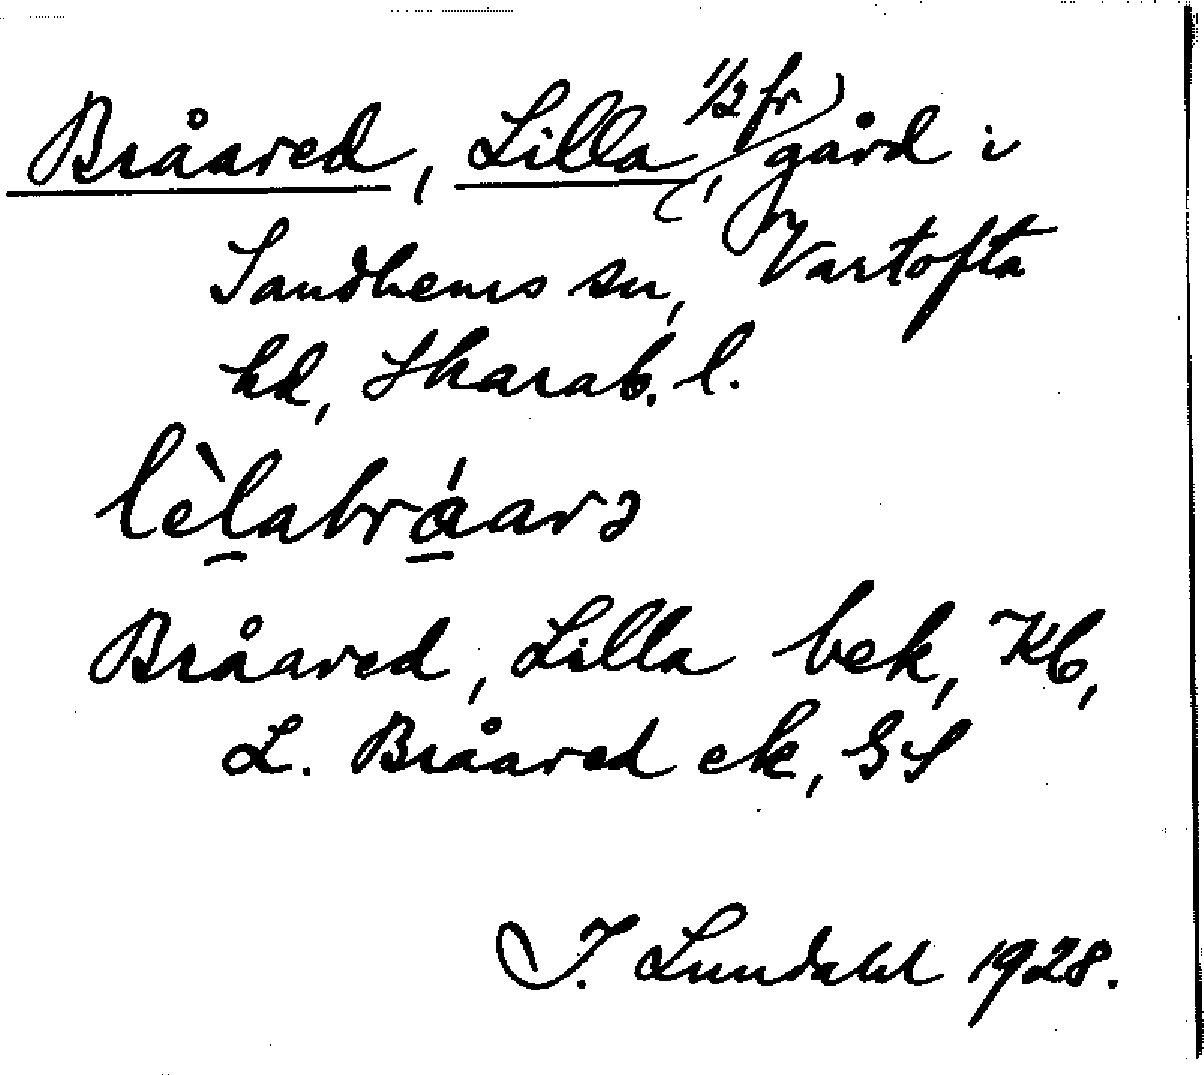 Bråared, Lilla, 1/2 fr gård i
Sandhems sn, Vartofta
hd, Skarab. l.
lèlabráarə
Bråared, Lilla bek, Kb,
L. Bråared ek, GS
I. Lundahl 1928.